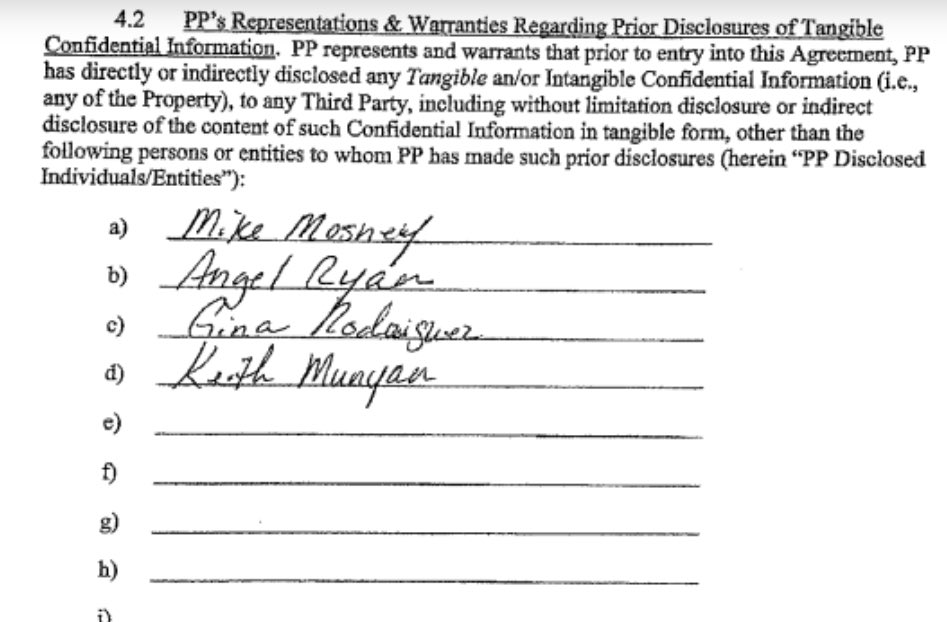 4.2 PP's Representations & Warranties Regarding Prior Disclosures of Tangible
Confidential Information. PP represents and warrants that prior to entry into this Agreement, PP
has directly or indirectly disclosed any Tangible an/or Intangible Confidential Information (i.e.,
any of the Property), to any Third Party, including without limitation disclosure or indirect
disclosure of the content of such Confidential Information in tangible form, other than the
following persons or entities to whom PP has made such prior disclosures (herein “PP Disclosed
Individuals/Entities”):
a) Mike Mosney
b) Angel Ryan
c) Gina Rodriguez
d) Keith Munyan
e)
f)
g)
h)
i)